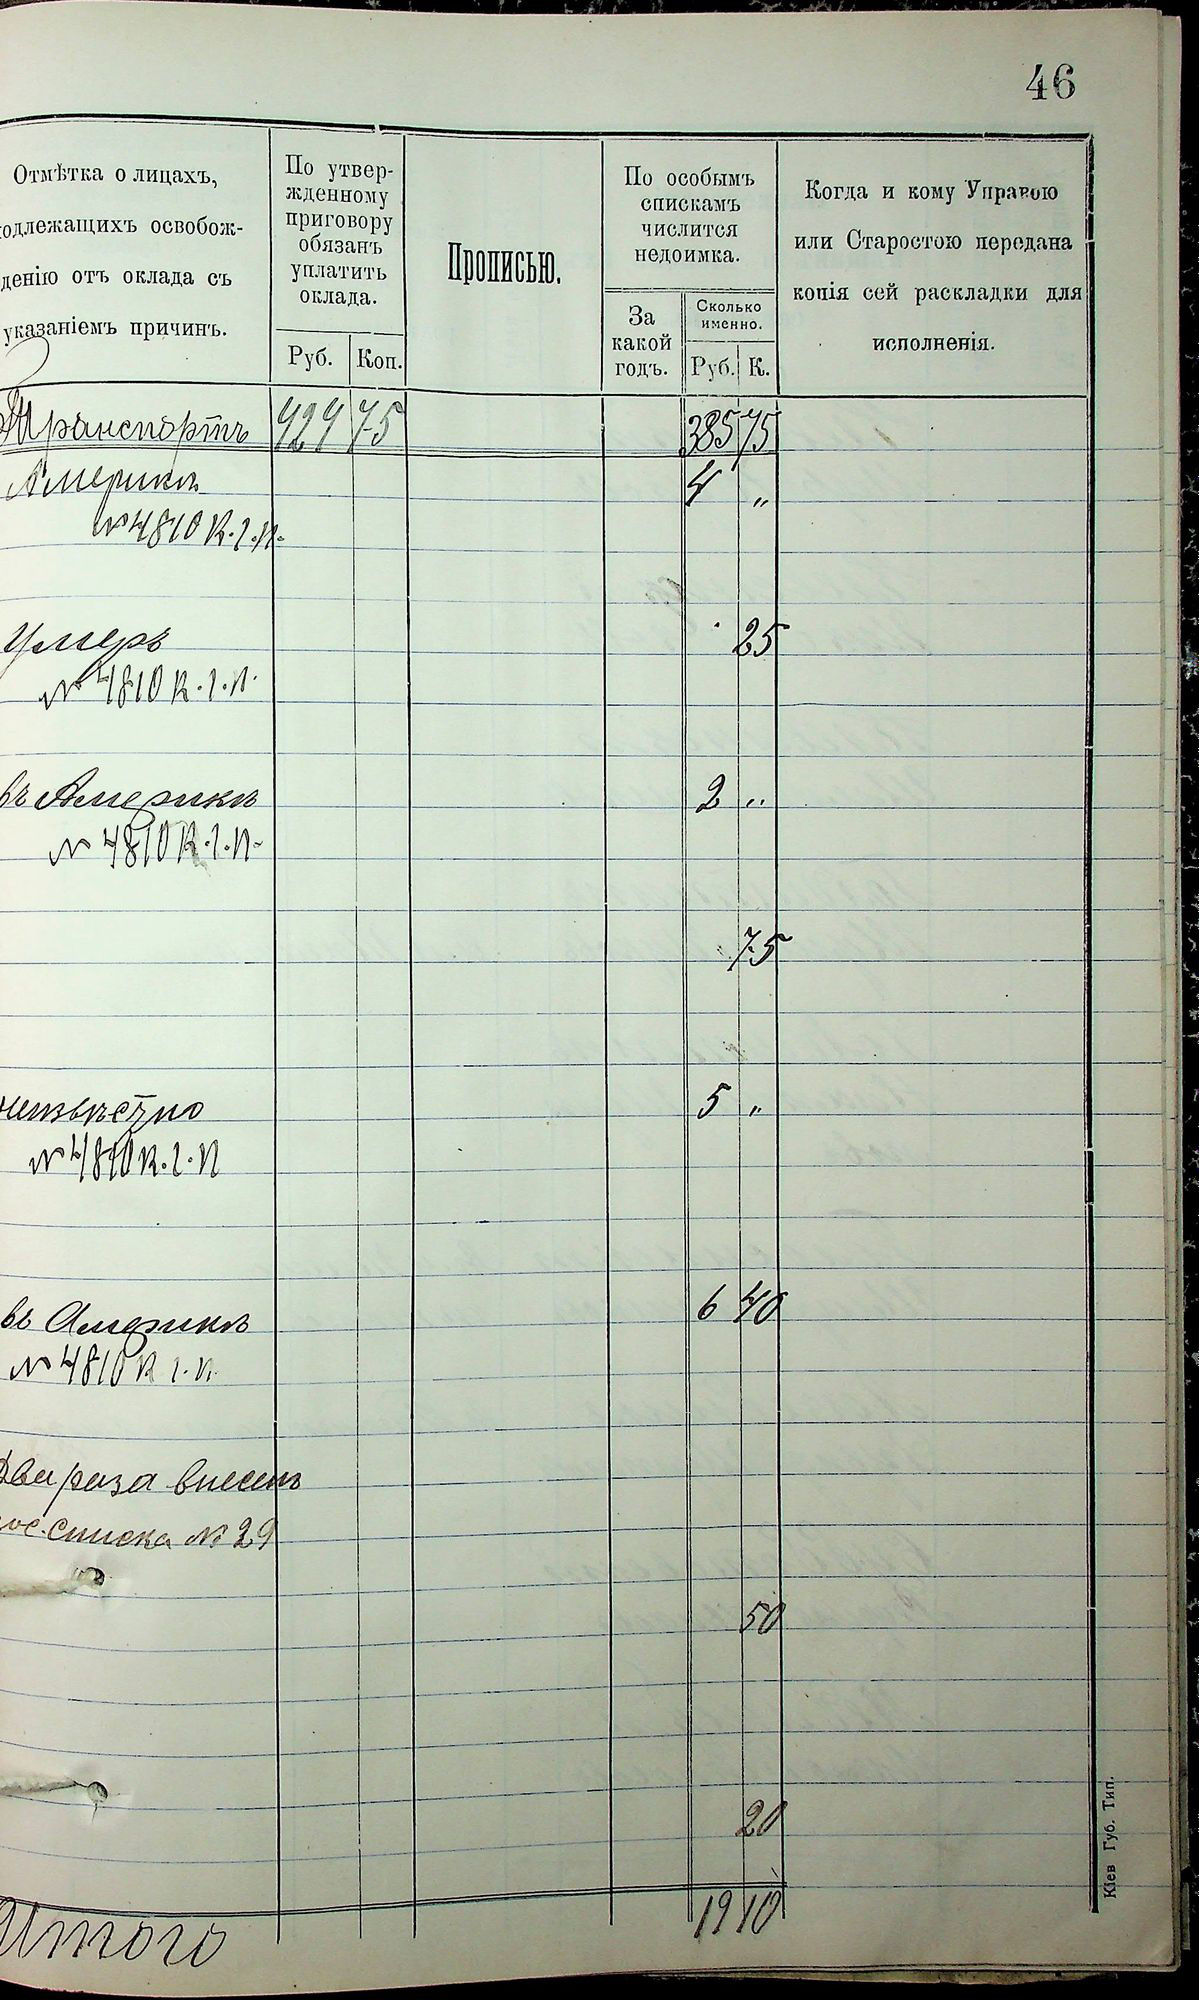 46
Отмѣтка о лицахъ,
одлежащихъ освобож-
денію отъ оклада съ
указаніемъ причинъ.
По утвер-
жденному
приговору
обязанъ
уплатить
оклада.
Руб. Коп.
Прописью.
По особымъ
спискамъ
числится
недоимка.
За
какой
годъ.
Сколько
именно.
Руб. К.
Когда и кому Управою
или Старостою передана
копія сей раскладки для
исполненія.
Транспортъ 424 75 385 75
Америкѣ 4 "
№ 4810 К.г.п.
Умеръ 25
№ 4810 К.г.п.
въ Америкѣ 2 "
№ 4810 К.г.п.
75
неизвѣстно 5 "
№ 4810 К.г.п
въ Америкѣ 6 40
№ 4810 К г.п.
Два раза внесенъ
списка № 29
50
20
Итого 19 10
Кіев Губ. Тип.